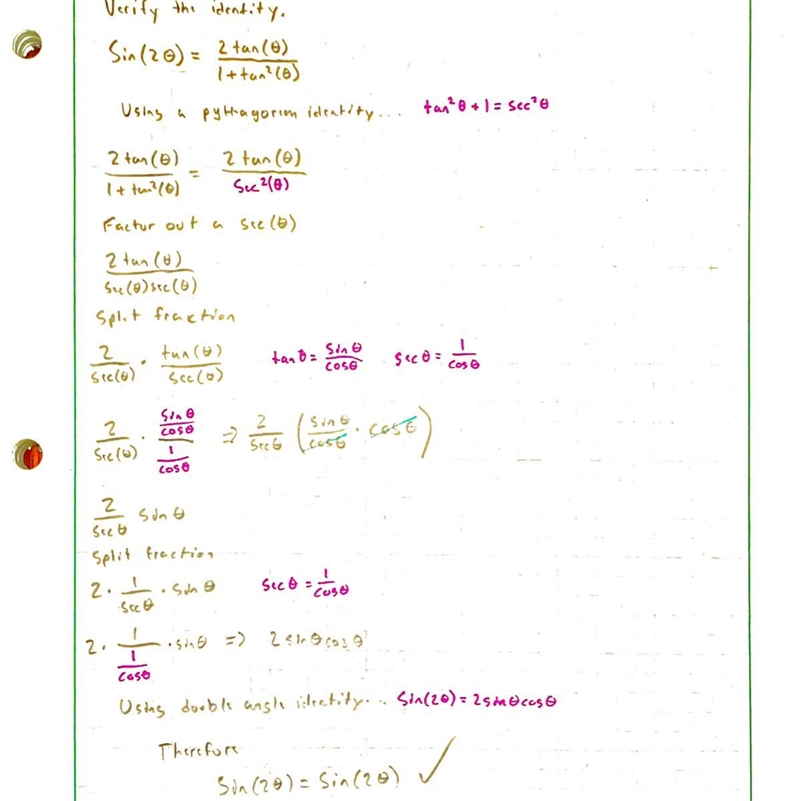 Verify the identity.
Sin(2θ) = 2 tan(θ) / 1 + tan²(θ)
Using a pythagorean identity... tan²θ + 1 = sec²θ
2 tan(θ) / 1 + tan²(θ) = 2 tan(θ) / Sec²(θ)
Factor out a sec(θ)
2 tan(θ) / Sec(θ) sec(θ)
Split fraction
2 / Sec(θ) · tan(θ) / Sec(θ) tanθ = Sinθ / cosθ secθ = 1 / cosθ
2 / Sec(θ) · Sinθ / cosθ / 1 / cosθ ⇒ 2 / Secθ (Sinθ / cosθ · cosθ)
2 / Secθ Sinθ
Split fraction
2 · 1 / Secθ · Sinθ Secθ = 1 / cosθ
2 · 1 / 1 / cosθ · sinθ ⇒ 2 sinθcosθ
Using double angle identity... Sin(2θ) = 2sinθcosθ
Therefore
Sin(2θ) = Sin(2θ) ✓